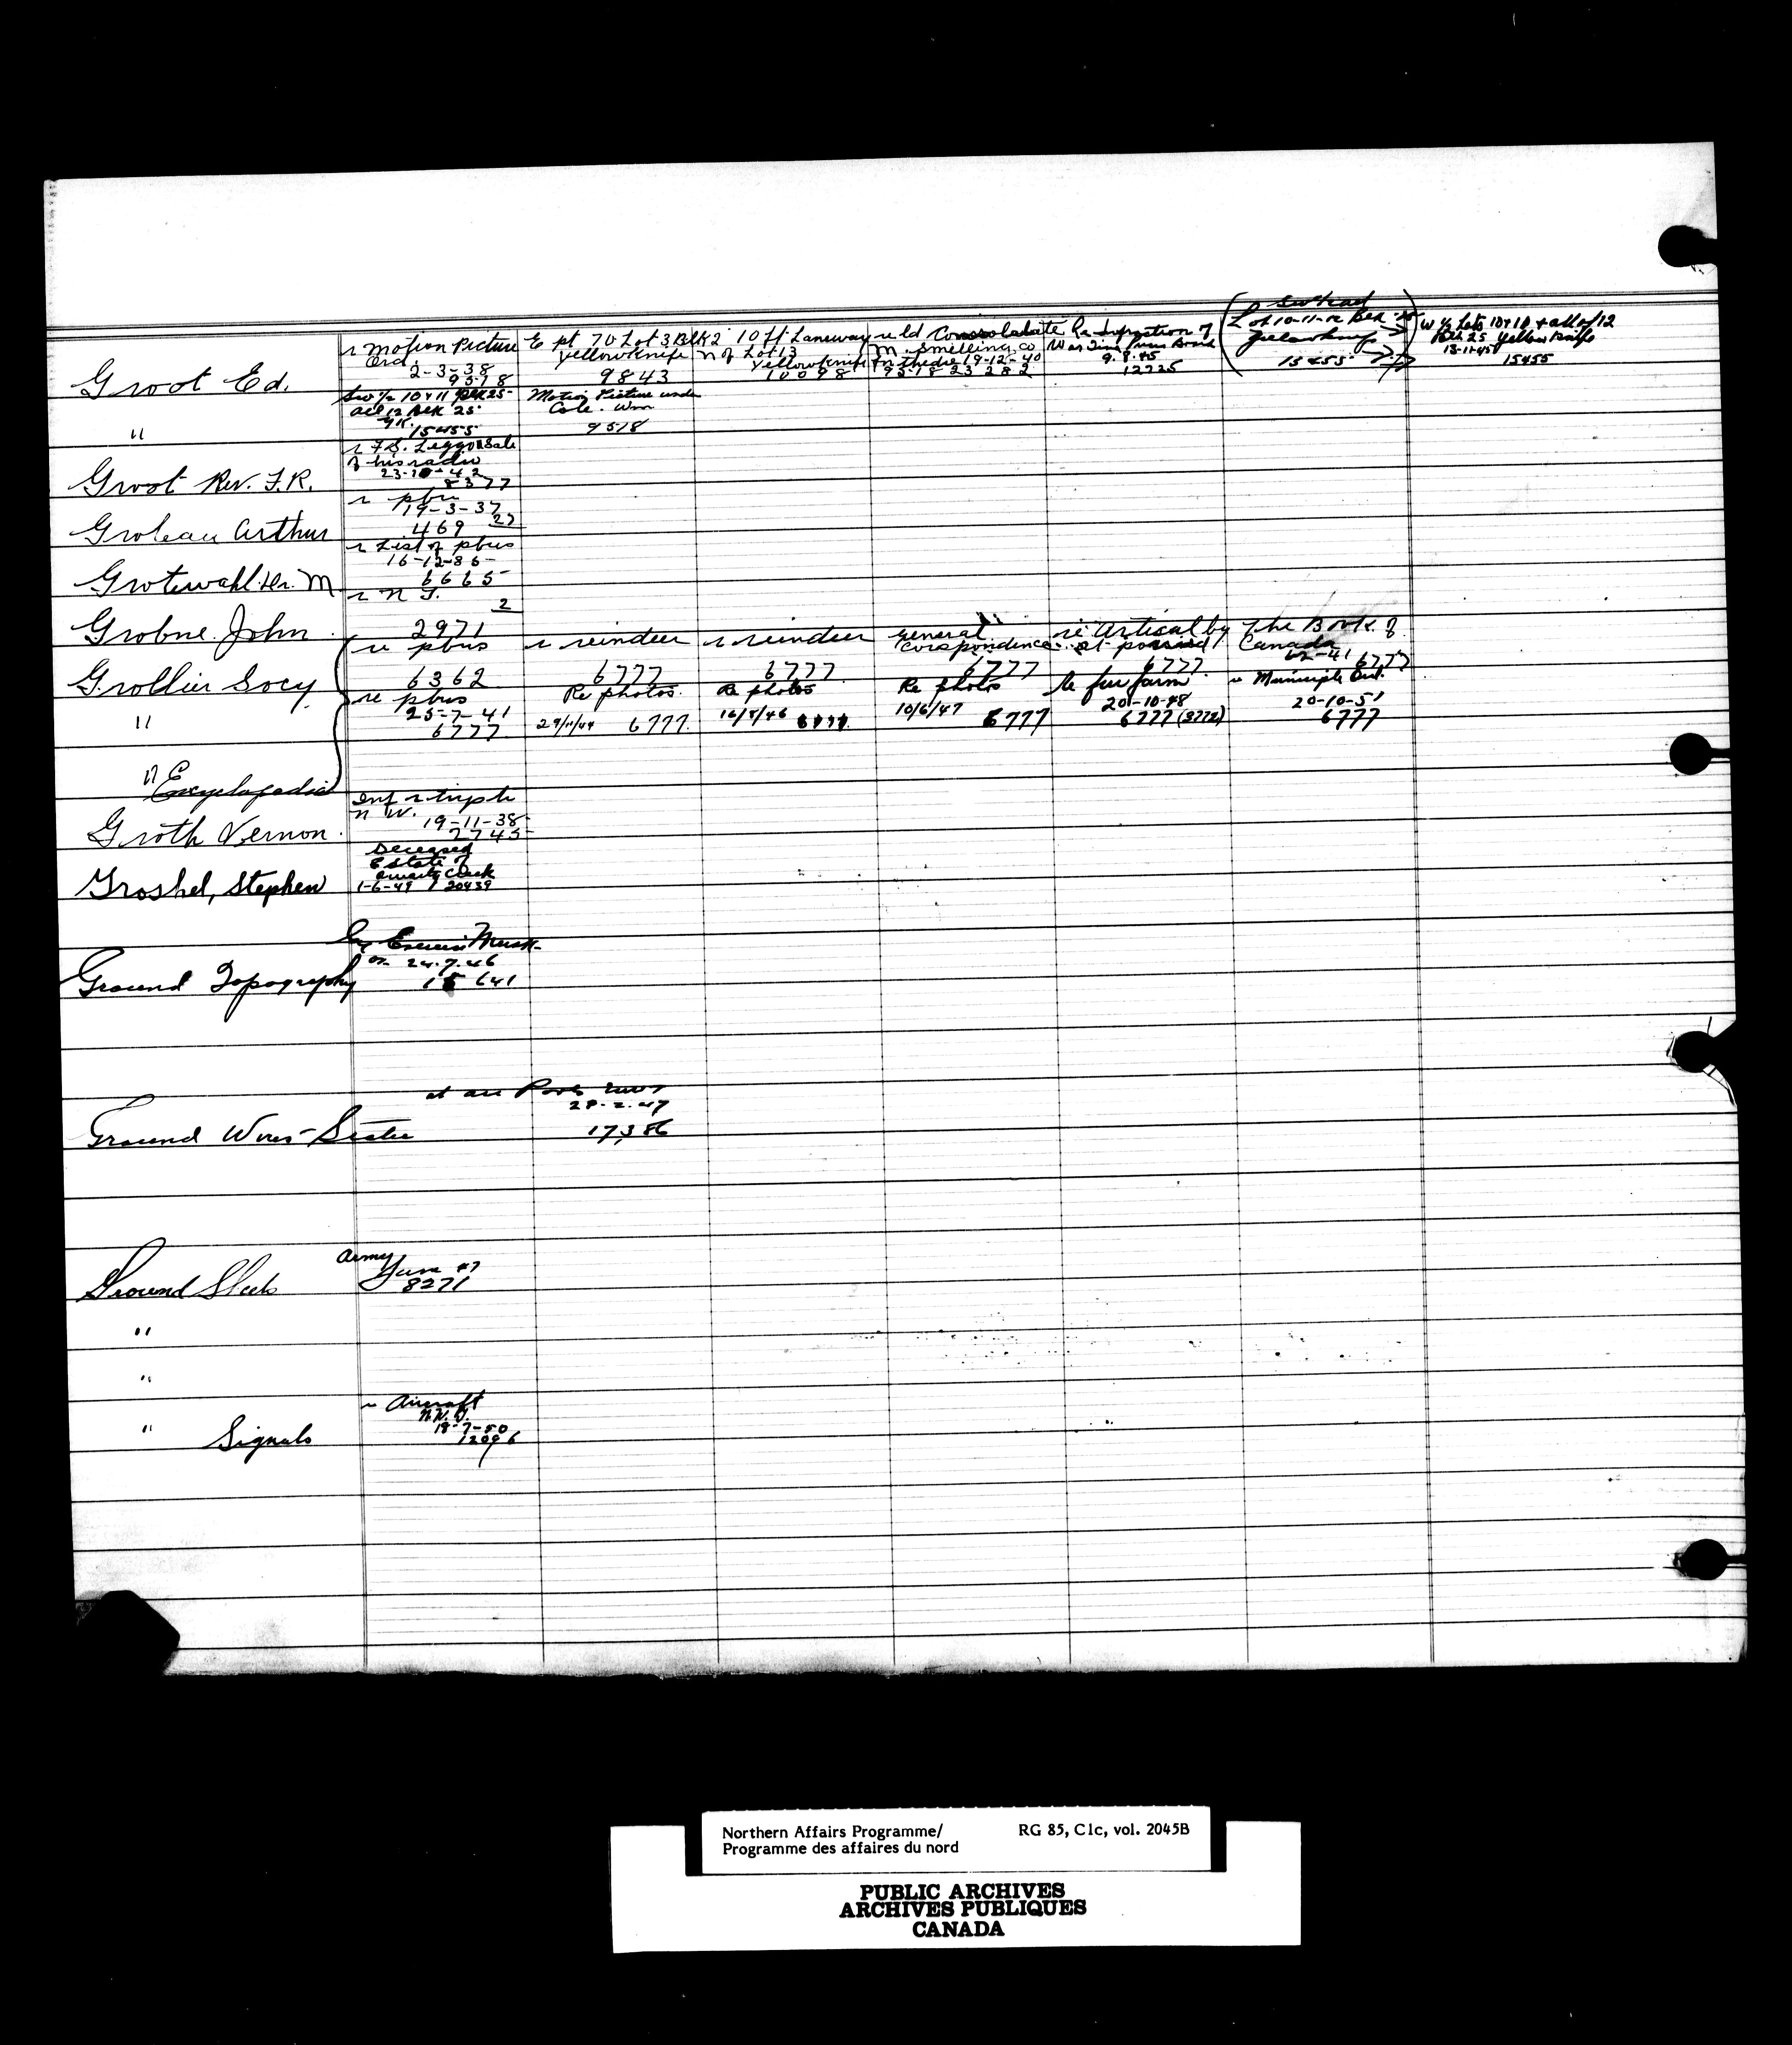 Groot Ed.
r Motion Picture
Ord.
2-3-38
9578
E pt 70 Lot 3 Blk 2
Yellowknife
9843
10 ft Laneway
N of Lot 13
Yellowknife
10098
M. Smelting Co
19-12-40
9578 23282
Re Infraction of
War Time Prices Board
9.8.45
12225
Lot 10-11-12 Blk 25
Yellowknife
15455
W ½ Lots 10+11 + all of 12
Blk 25 Yellowknife
13-11-45
15455
"
SW ½ 10+11 Blk 25
all 12 Blk 25
YK.
15455
Motion Picture under
Cole. Wm
9578
Groot Rev. F.R.
r F.S. Leggo Sale
of his radio
23-10-42
8377
Groleau Arthur
19-3-37
469 27
Grotewahl Dr. M
r List of pbns
6665
Grobne John
r N.T.
2
2971
Grollier Socy
re pbns
6362
r reindeer
6777
r reindeer
6777
general
corspondence
6777
re Artical by
6777
The Book of
Canada
6777
"
re pbns
25-7-41
6777
Re photos.
29/11/44 6777
Re photos
6777
Re photos
10/6/47 6777
Re fur farm
20-10-48
6777 (3772)
20-10-51
6777
" Encyclopedia
Groth Vernon.
N W.
19-11-38
2745
Groshel, Stephen
Deceased
Estate of
1-6-49 20439
Ground Topography
24.7.46
Ground Wires
17,386
Ground
Army
June 47
8271
"
"
" Signals
r Aircraft
N.W.T.
18-7-50
12096
Northern Affairs Programme/ RG 85, C1c, vol. 2045B
Programme des affaires du nord
PUBLIC ARCHIVES
ARCHIVES PUBLIQUES
CANADA